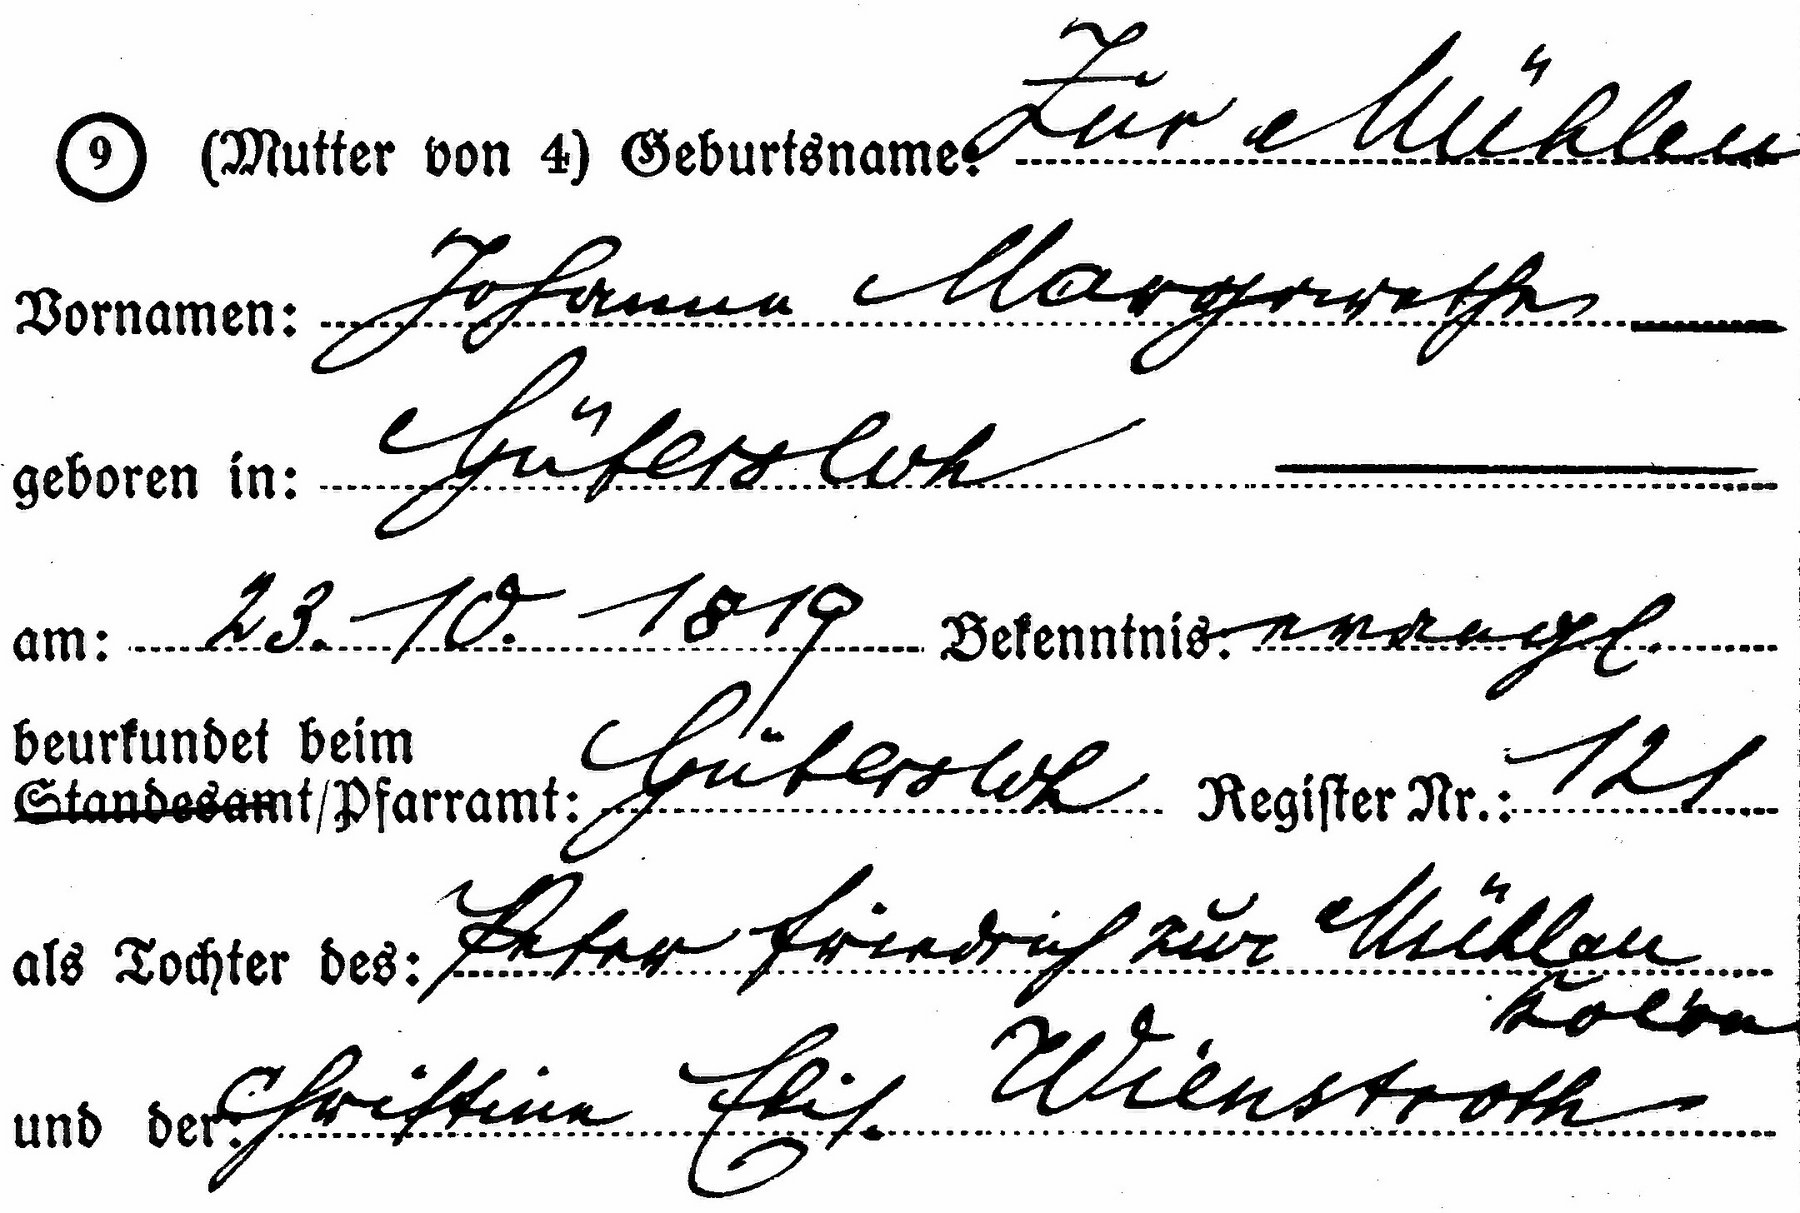 9 (Mutter von 4) Geburtsname: Zur Mühlen
Vornamen: Johanne Margarethe
geboren in: Gütersloh
am: 23. 10. 1819 Bekenntnis: evangl.
beurkundet beim
Standesamt/Pfarramt: Gütersloh Register Nr.: 121
als Tochter des: Peter Friedrich zur Mühlen
Kolon
und der: Christine Elis. Wienstroth